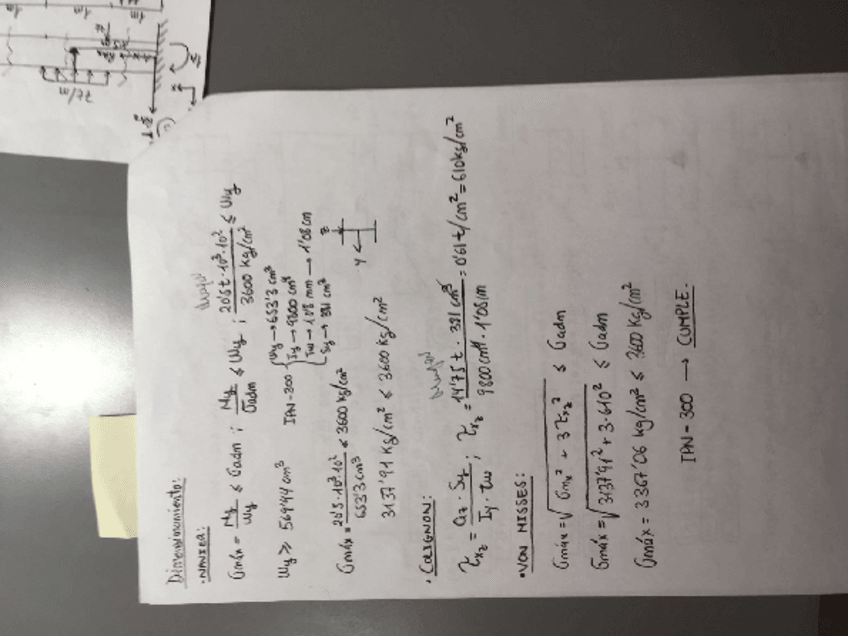 Dimensionamiento:
• NAVIER:
σmáx = My / Wy ≤ σadm ; My / σadm ≤ Wy ; 20'5 t · 10³ · 10² / 3600 kg/cm² ≤ Wy
Wy ≥ 569'44 cm³
IPN-300 { Wy → 653'3 cm³
Iy → 9800 cm⁴
tw → 10'8 mm → 1'08 cm
Sy → 381 cm³
z
y
σmáx = 20'5 · 10³ · 10² / 653'3 cm³ ≤ 3600 kg/cm²
3137'91 kg/cm² ≤ 3600 kg/cm²
• COLIGNON:
τxz = Qz · Sy / Iy · tw ; τxz = 14'75 t · 381 cm³ / 9800 cm⁴ · 1'08 cm = 0'61 t/cm² = 610 kg/cm²
• VON MISSES:
σmáx = √σmx² + 3 τxz² ≤ σadm
σmáx = √3137'91² + 3 · 610² ≤ σadm
σmáx = 3367'06 kg/cm² ≤ 3600 kg/cm²
IPN-300 → CUMPLE.
1m
1m
1m
7t/m
x